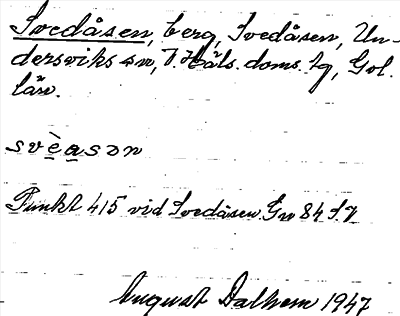 Svedåsen, berg, Svedåsen, Un-
dersviks sn, V. Häls. doms. tg, Gvl.
län.
svèasɔn
Punkt 415 vid Svedåsen. Gv 84 S.V.
August Dalhem 1947